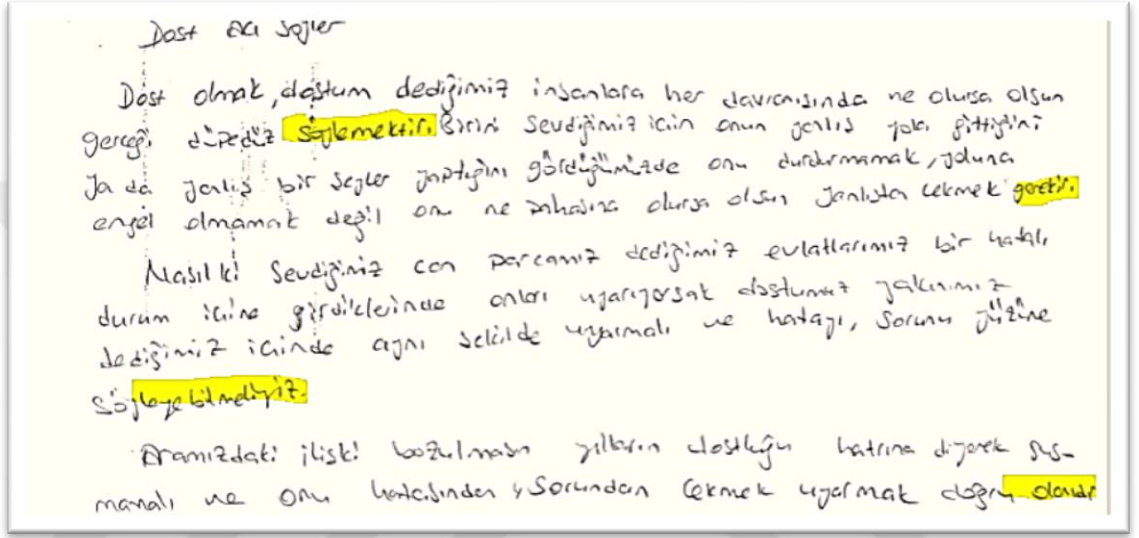 Dost acı söyler
Dost olmak, dostum dediğimiz insanlara her davranışında ne olursa olsun
gerçeği düpedüz söylemektir. Birini sevdiğimiz için onun yanlış yola gittiğini
ya da yanlış bir şeyler yaptığını gördüğümüzde onu durdurmamak, yoluna
engel olmamak değil onu ne pahasına olursa olsun yanlıştan çekmek gerekir.
Nasıl ki sevdiğimiz can parçamız dediğimiz evlatlarımız bir hatalı
durum içine girdiklerinde onları uyarıyorsak dostumuz yakınımız
dediğimiz içinde aynı şekilde uyarmalı ve hatayı, sorunu yüzüne
söyleye bilmeliyiz.
Aramızdaki ilişki bozulmasın yılların dostluğu hatrına diyerek sus-
mamalı ve onu hatasından, sorundan çekmek uyarmak doğru olandır